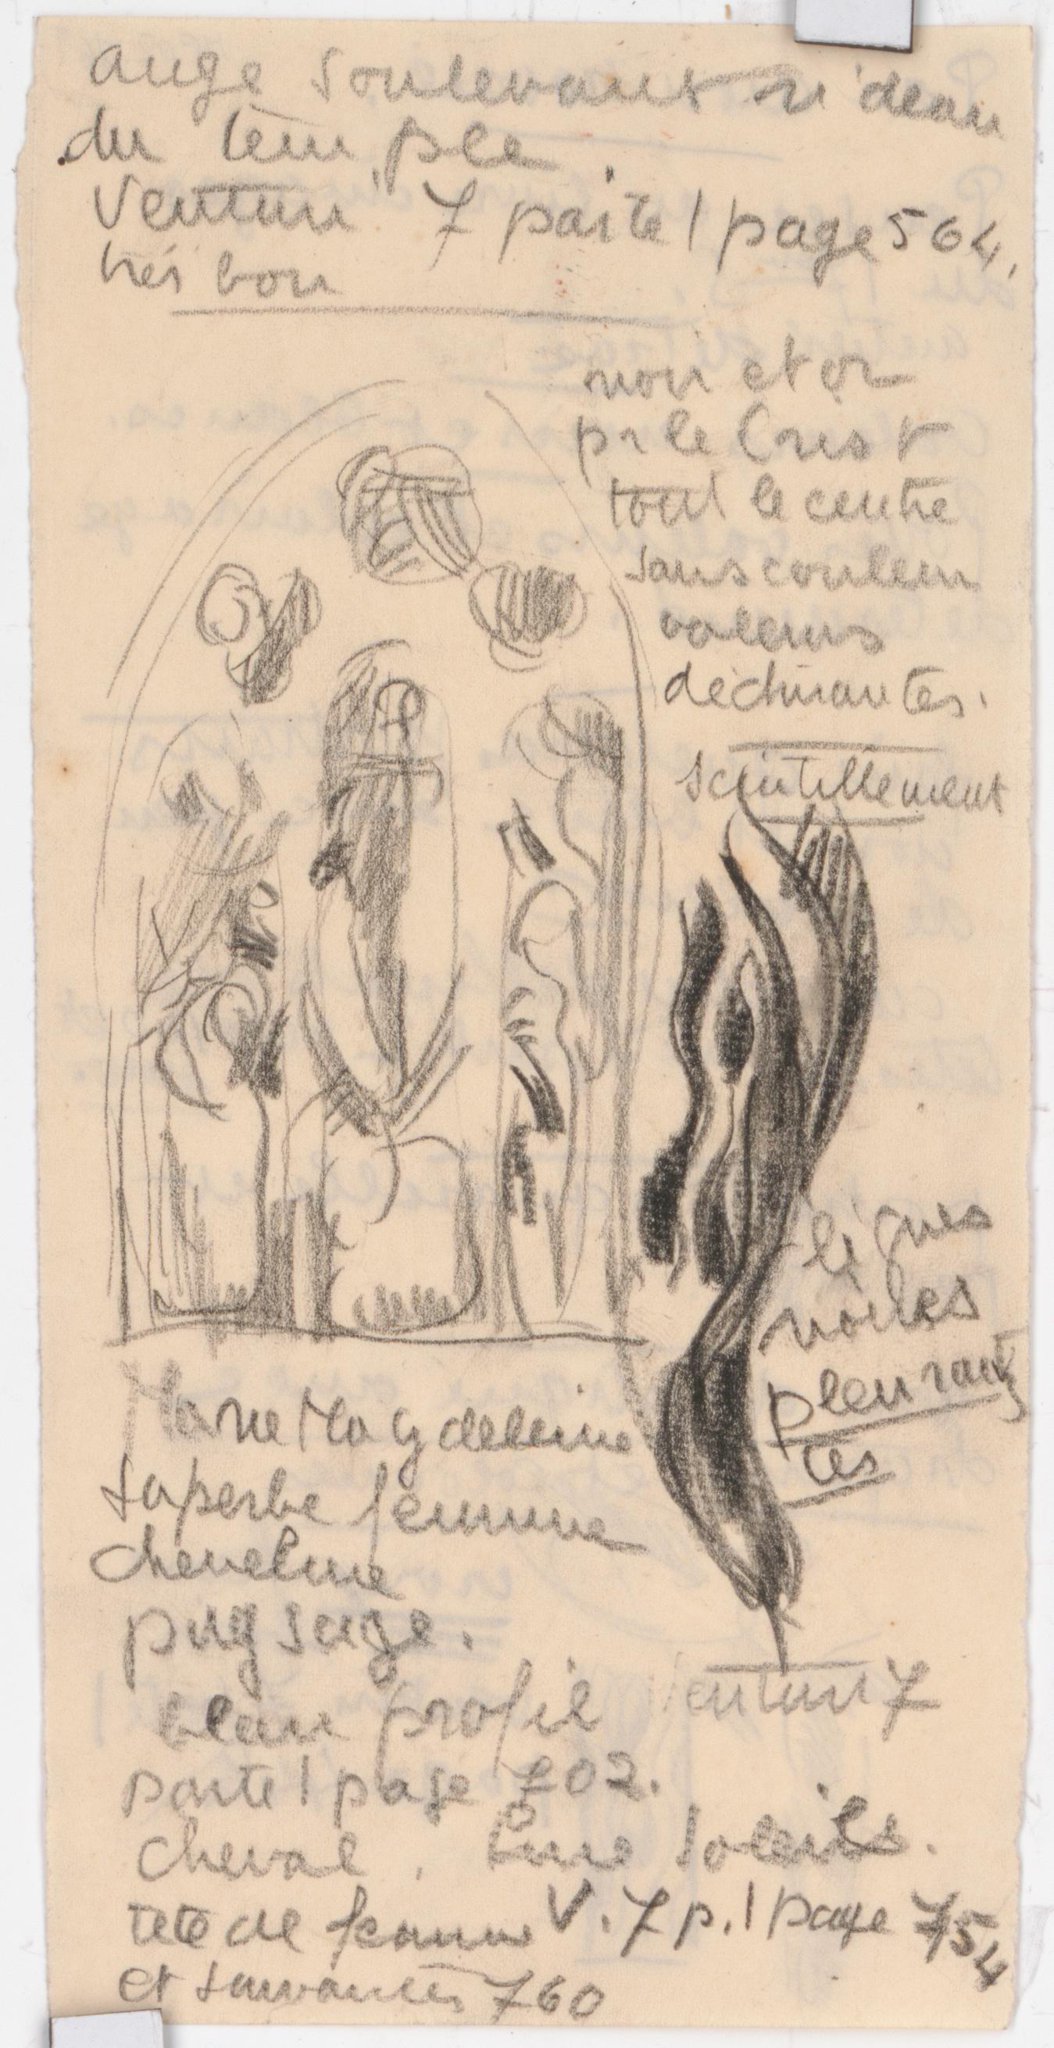 ange soulevant rideau
du temple.
Venturi 7 partie 1 page 564.
très bon
noir et or
pr le Crist
tout le centre
sans couleur
valeurs
déchirantes.
scintillement
lignes
noires
pleurant
tes
Marie Magdeleine
superbe femme
chevelure
paysage.
beau profil Venturi 7
partie 1 page 702.
cheval. Lune Soleils.
tete de femme V. 7 p. 1 page 754
et suivantes 760